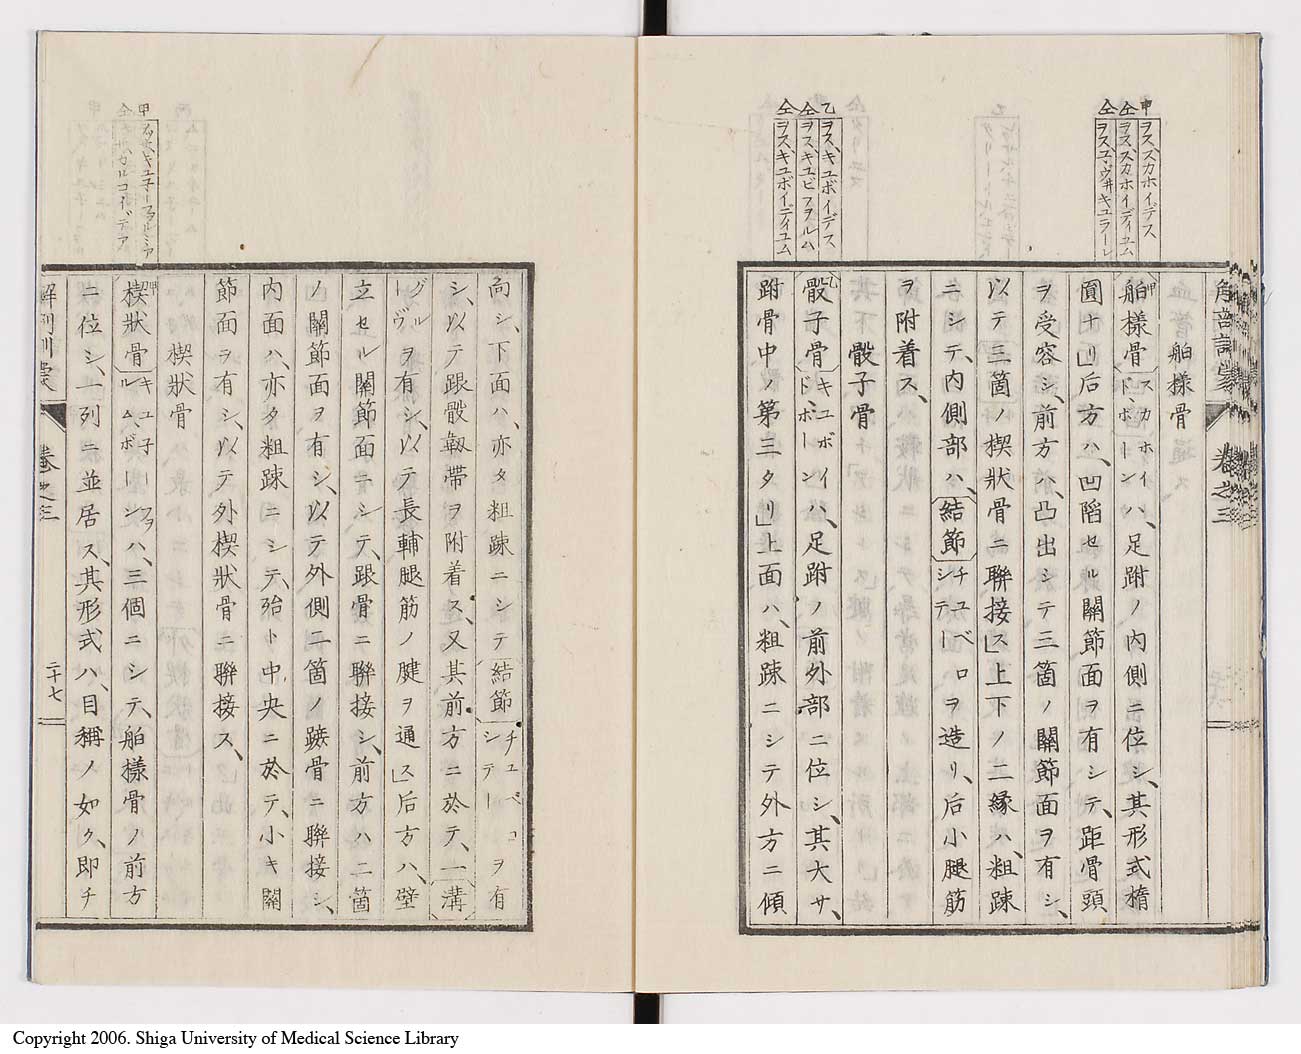 甲 ヲススカホイデス
仝 ヲススカホイディユム
仝
解剖訓蒙 卷之三
舶様骨
舶様骨スカホイドボーンハ、足跗ノ内側ニ位シ、其形式楕
圓ナリ」后方ハ、凹陷セル關節面ヲ有シテ、距骨頭
ヲ受容シ、前方ハ、凸出シテ三箇ノ關節面ヲ有シ、
以テ三箇ノ楔狀骨ニ聯接ス」上下ノ二縁ハ、粗踈
ニシテ、内側部ハ、結節チユベロシテーヲ造リ、后小腿筋
ヲ附着ス、
乙 ヲスキユボイデス
仝 ヲスキユビフヲルム
仝 ヲスキユボイディユム
骰子骨
乙骰子骨キユボイドボーンハ、足跗ノ前外部ニ位シ、其大サ、
跗骨中ノ第三タリ」上面ハ、粗踈ニシテ外方ニ傾
向シ、下面ハ、亦タ粗踈ニシテ結節チユベロシテーヲ有
シ、以テ跟骰韌帶ヲ附着ス、又其前方ニ於テ、一溝
グルーヴヲ有シ、以テ長輔腿筋ノ腱ヲ通ス」后方ハ、壁
立セル關節面ニシテ、跟骨ニ聯接シ、前方ハ二箇
ノ關節面ヲ有シ、以テ外側二箇ノ蹠骨ニ聯接シ、
内面ハ、亦タ粗踈ニシテ、殆ト中央ニ於テ、小キ關
節面ヲ有シ、以テ外楔狀骨ニ聯接ス、
楔狀骨
甲楔狀骨キユ子ーフヲルムボーンハ、三個ニシテ、舶様骨ノ前方
ニ位シ、一列ニ並居ス、其形式ハ、目稱ノ如ク、即チ
解剖訓蒙 卷之三 二十七
Copyright 2006. Shiga University of Medical Science Library